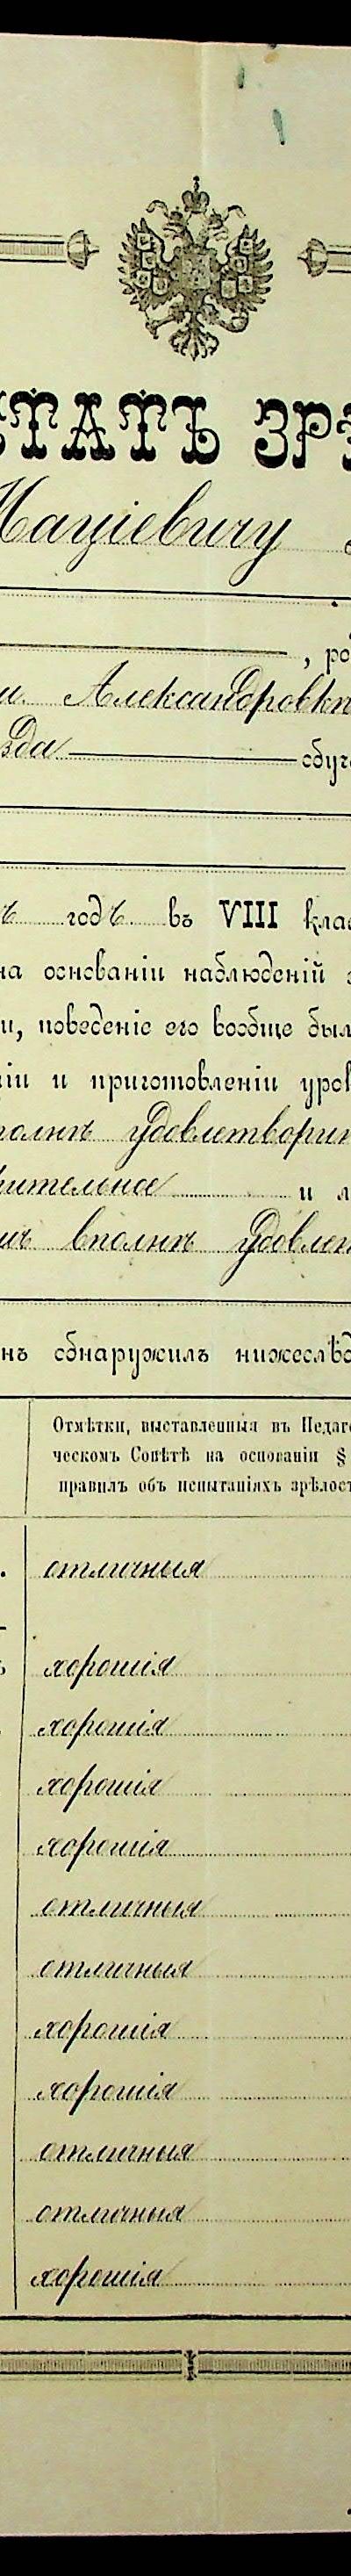 СТАТЪ ЗРѢ
Мацiевичу
, ро
и Александровкѣ
зда обуч
ъ годъ въ VIII клас
на основаніи наблюденій з
и, поведеніе его вообще был
ніи и приготовленіи урок
полнѣ удовлетворит
ительное и л
ши вполнѣ удовлет
нъ обнаружилъ нижеслѣд
Отмѣтки, выставленныя въ Педаго
ческомъ Совѣтѣ на основаніи §
правилъ объ испытаніяхъ зрѣлост
отличныя
хорошія
хорошія
хорошія
хорошія
отличныя
отличныя
хорошія
хорошія
отличныя
отличныя
хорошія